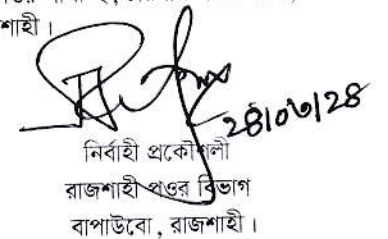 শাহী।
২৪/০৩/২৪
নির্বাহী প্রকৌশলী
রাজশাহী পওর বিভাগ
বাপাউবো, রাজশাহী।